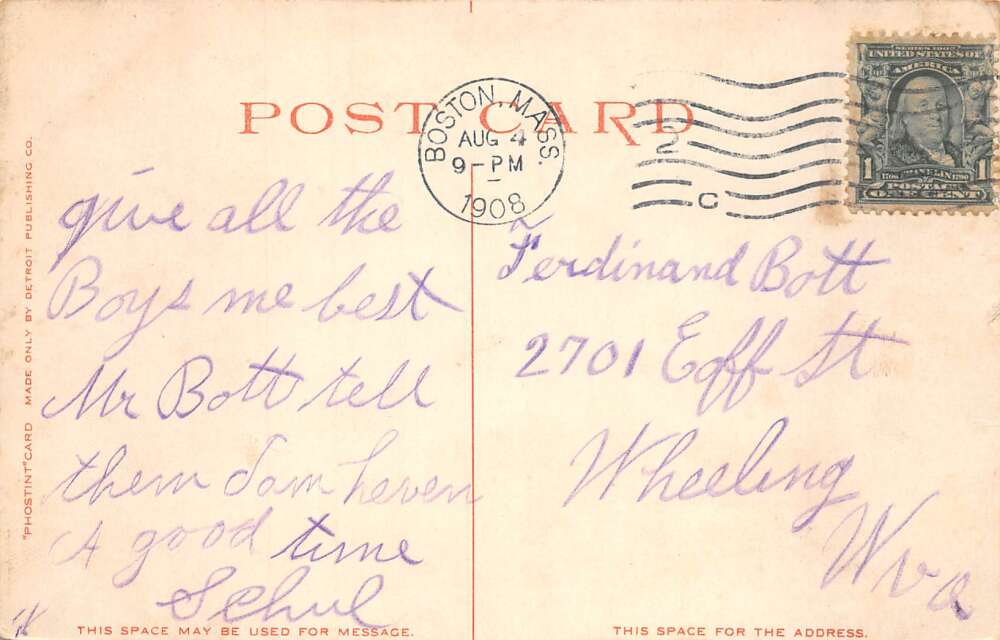 POST CARD
BOSTON, MASS.
AUG 4
9-PM
1908
2
C
SERIES 1902
UNITED STATES OF
AMERICA
1 FRANKLIN 1
1706 1790
POSTAGE
ONE CENT
give all the
Boys me best
Mr Bott tell
them I am heven
A good time
Schul
Ferdinand Bott
2701 Eoff St
Wheeling
W va
"PHOSTINT" CARD MADE ONLY BY DETROIT PUBLISHING CO.
THIS SPACE MAY BE USED FOR MESSAGE.
THIS SPACE FOR THE ADDRESS.